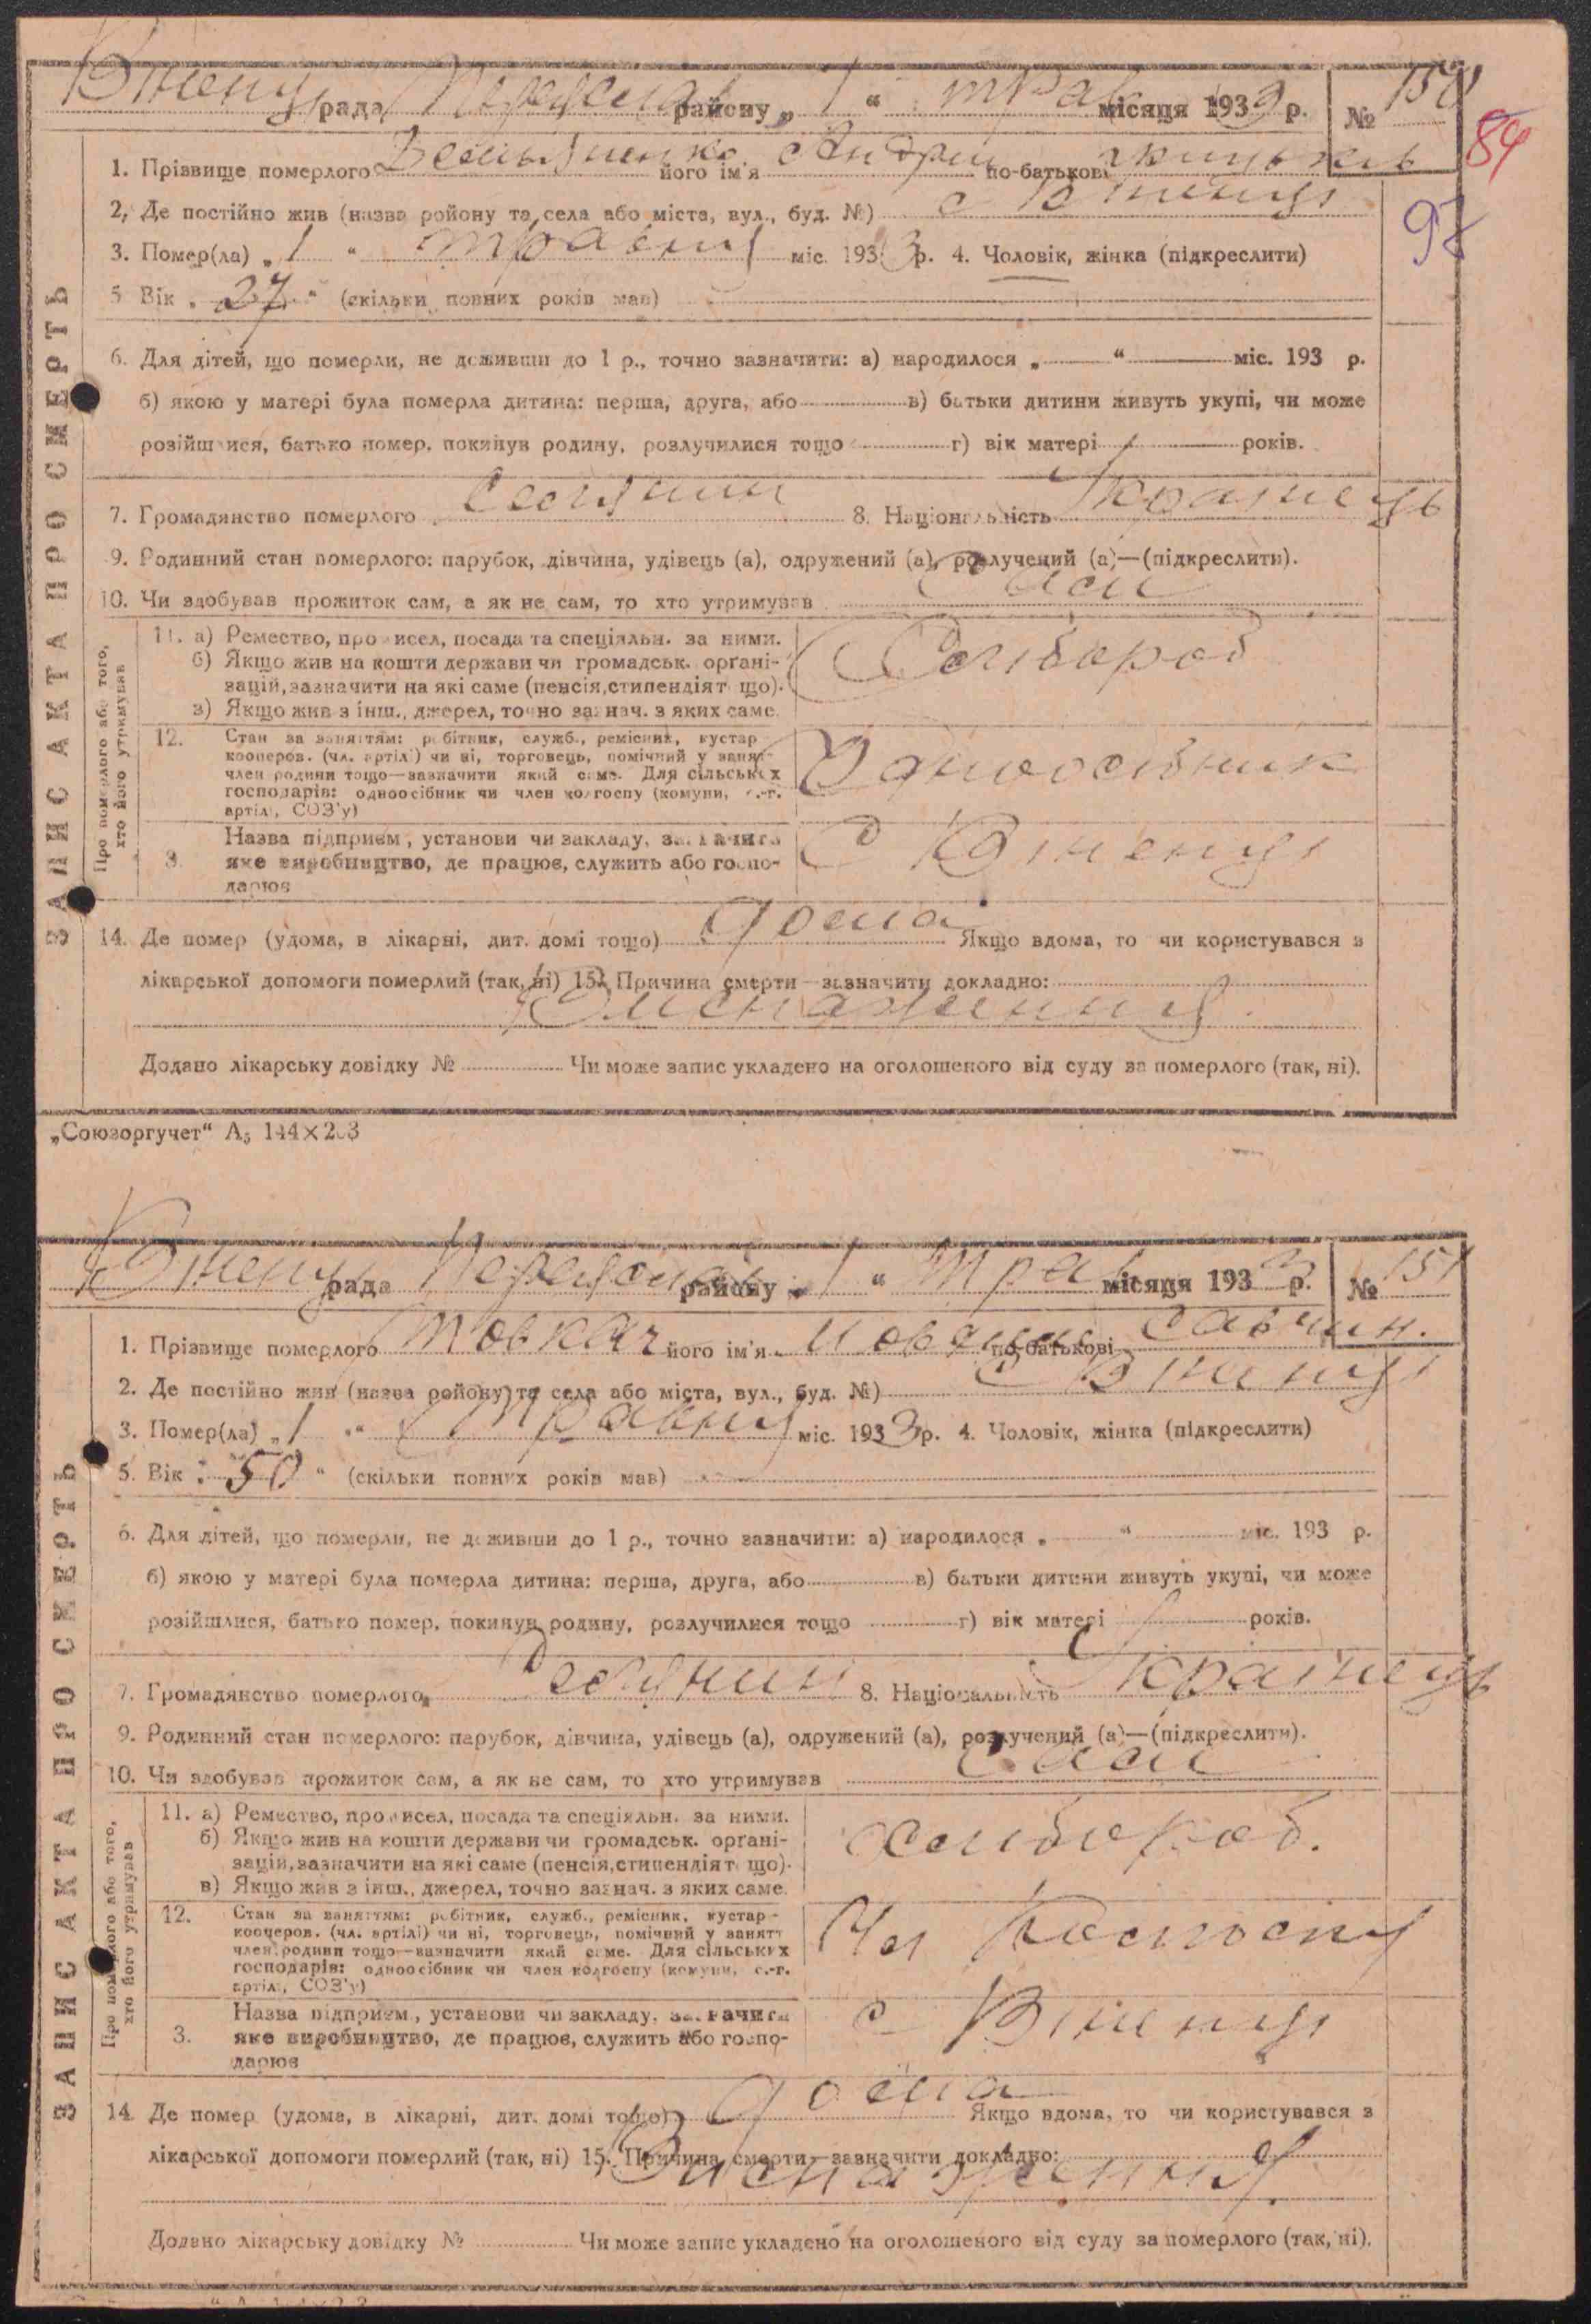 рада районy „ 1 “ трав місяця 1933 р. № 150
84
1. Прізвище померлого його ім'я Андрій по-батькові
2. Де постійно жив (назва ройону та села або міста, вул., буд. №) с
97
3. Помер(ла) „ 1 “ травня міс. 1933 р. 4. Чоловік, жінка (підкреслити)
5 Вік „ 27 “ (скільки повних років мав)
6. Для дітей, що померли, не доживши до 1 р., точно зазначити: а) народилося „ “ міс. 193 р.
б) якою у матері була померла дитина: перша, друга, або в) батьки дитини живуть укупі, чи може
розійшлися, батько помер, покинув родину, розлучилися тощо г) вік матері років.
7. Громадянство померлого 8. Національність Українець
9. Родинний стан померлого: парубок, дівчина, удівець (а), одружений (а), розлучений (а)—(підкреслити).
10. Чи здобував прожиток сам, а як не сам, то хто утримував Сам
ЗАПИС АКТА ПРО СМЕРТЬ
Про померлого або того, хто його утримував
11. а) Ремество, промисел, посада та спеціяльн. за ними.
б) Якщо жив на кошти держави чи громадськ. орґані-
зацій, зазначити на які саме (пенсія, стипендіят що).
з) Якщо жив з інш., джерел, точно зазнач. з яких саме.
Хлібороб
12. Стан за заняттям: робітник, служб., ремісник, кустар
кооперов. (чл. артілі) чи ні, торговець, помічний у занят-
член родини тощо—зазначити який саме. Для сільських
господарів: одноосібник чи член колгоспу (комуни, с.-г.
артілі, СОЗ'у)
Одноосібник
3. Назва підприєм., установи чи закладу, зазначити
яке виробництво, де працює, служить або госпо-
дарює
С
14. Де помер (удома, в лікарні, дит. домі тощо) дома Якщо вдома, то чи користувався з
лікарської допомоги померлий (так, ні) 15. Причина смерти—зазначити докладно:
Виснаження
Додано лікарську довідку № Чи може запис укладено на оголошеного від суду за померлого (так, ні).
„Союзоргучет“ А5 144×203
рада районy „ 1 “ Трав місяця 1933 р. № 151
1. Прізвище померлого Товкач його ім'я по-батькові
2. Де постійно жив (назва ройону та села або міста, вул., буд. №) с
3. Помер(ла) „ 1 “ Травня міс. 1933 р. 4. Чоловік, жінка (підкреслити)
5. Вік „ 50 “ (скільки повних років мав)
6. Для дітей, що померли, не доживши до 1 р., точно зазначити: а) народилося „ “ міс. 193 р.
б) якою у матері була померла дитина: перша, друга, або в) батьки дитини живуть укупі, чи може
розійшлися, батько помер, покинув родину, розлучилися тощо г) вік матері років.
7. Громадянство померлого 8. Національність Українець
9. Родинний стан померлого: парубок, дівчина, удівець (а), одружений (а), розлучений (а)—(підкреслити).
10. Чи здобував прожиток сам, а як не сам, то хто утримував Сам
ЗАПИС АКТА ПРО СМЕРТЬ
Про померлого або того, хто його утримував
11. а) Ремество, промисел, посада та спеціяльн. за ними.
б) Якщо жив на кошти держави чи громадськ. орґані-
зацій, зазначити на які саме (пенсія, стипендіят що).
в) Якщо жив з інш., джерел, точно зазнач. з яких саме.
хлібороб.
12. Стан за заняттям: робітник, служб., ремісник, кустар-
кооперов. (чл. артілі) чи ні, торговець, помічний у занятт
член родини тощо—зазначити який саме. Для сільських
господарів: одноосібник чи член колгоспу (комуни, с.-г.
артілі, СОЗ'у)
Чл Колгоспу
3. Назва підприєм., установи чи закладу, зазначити
яке виробництво, де працює, служить або госпо-
дарює
с
14. Де помер (удома, в лікарні, дит. домі тощо) дома Якщо вдома, то чи користувався з
лікарської допомоги померлий (так, ні) 15. Причина смерти—зазначити докладно:
Виснаження
Додано лікарську довідку № Чи може запис укладено на оголошеного від суду за померлого (так, ні).